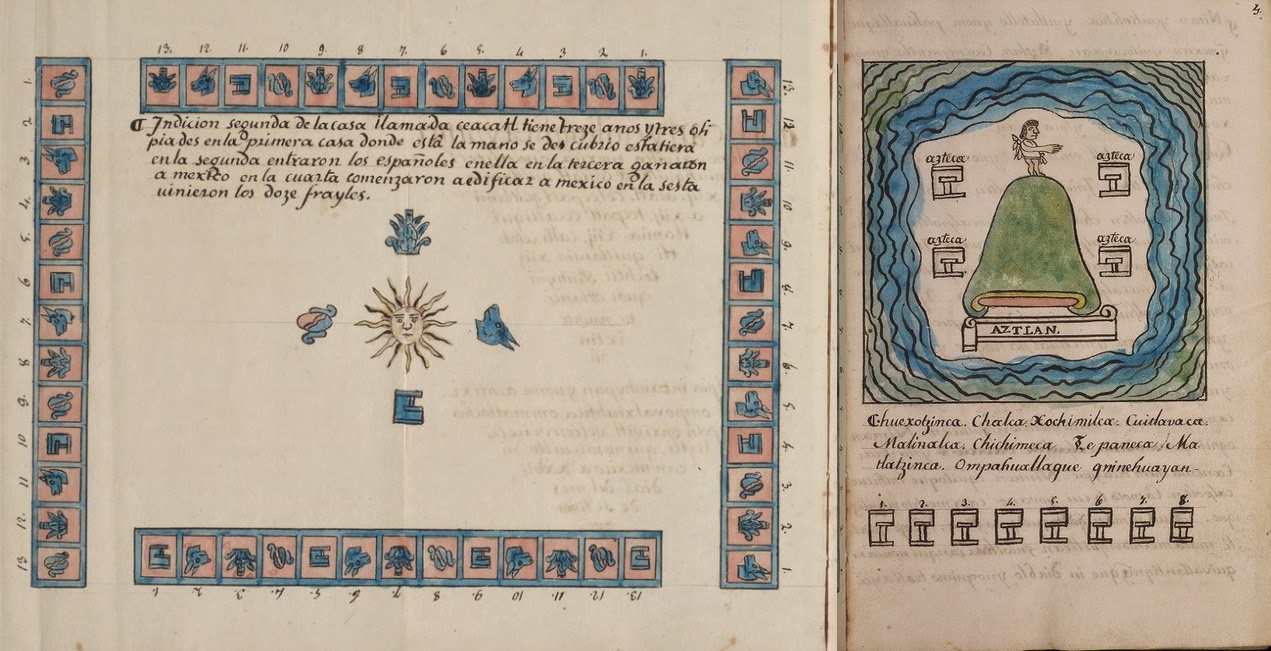 13. 12. 11. 10 9. 8 7. 6 5. 4 3 2. 1.
Jndicion segunda de la casa llamada ceacatl tiene treze anos y tres oli
piades en la primera casa donde està la mano se des cubrio esta tiera
en la segunda entraron los españoles en ella en la tercera ganaron
a mexico en la cuarta comenzaron a edificar a mexico en la sesta
vinieron los doze frayles.
1. 2 3 4. 5. 6 7. 8 9. 10 11 12. 13
13. 12 11 10 9. 8. 7 6. 5. 4 3. 2. 1.
1. 2. 3. 4. 5. 6. 7 8. 9. 10 11. 12. 13.
azteca azteca
azteca azteca
AZTLAN.
Chuexotzinca. Chalca. Xochimilca. Cuitlavaca.
Malinalca. Chichimeca. Tepaneca. Ma
tlatzinca. Ompahuallaque qninehuayan
1. 2. 3. 4. 5. 6 7. 8.